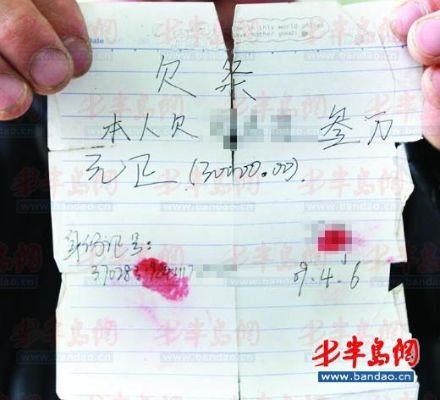 Date
欠条
本人欠 叁万
元正(30000.00).
身份证号:
09.4.6
半岛网
www.bandao.cn